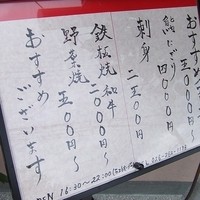 おすすめ
鮨にぎり 四〇〇〇円〜
刺身 二五〇〇円
鉄板焼 和牛 二〇〇〇円〜
野菜焼 五〇〇円〜
おすすめ
ございます
OPEN 16:30〜22:00